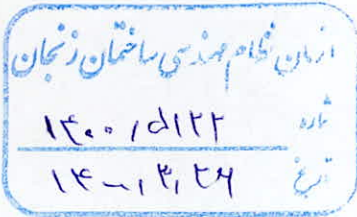 سازمان نظام مهندسی ساختمان زنجان
شماره ۱۴۰۰/۵۱۲۲
تاریخ ۱۴۰۰/۳/۲۶